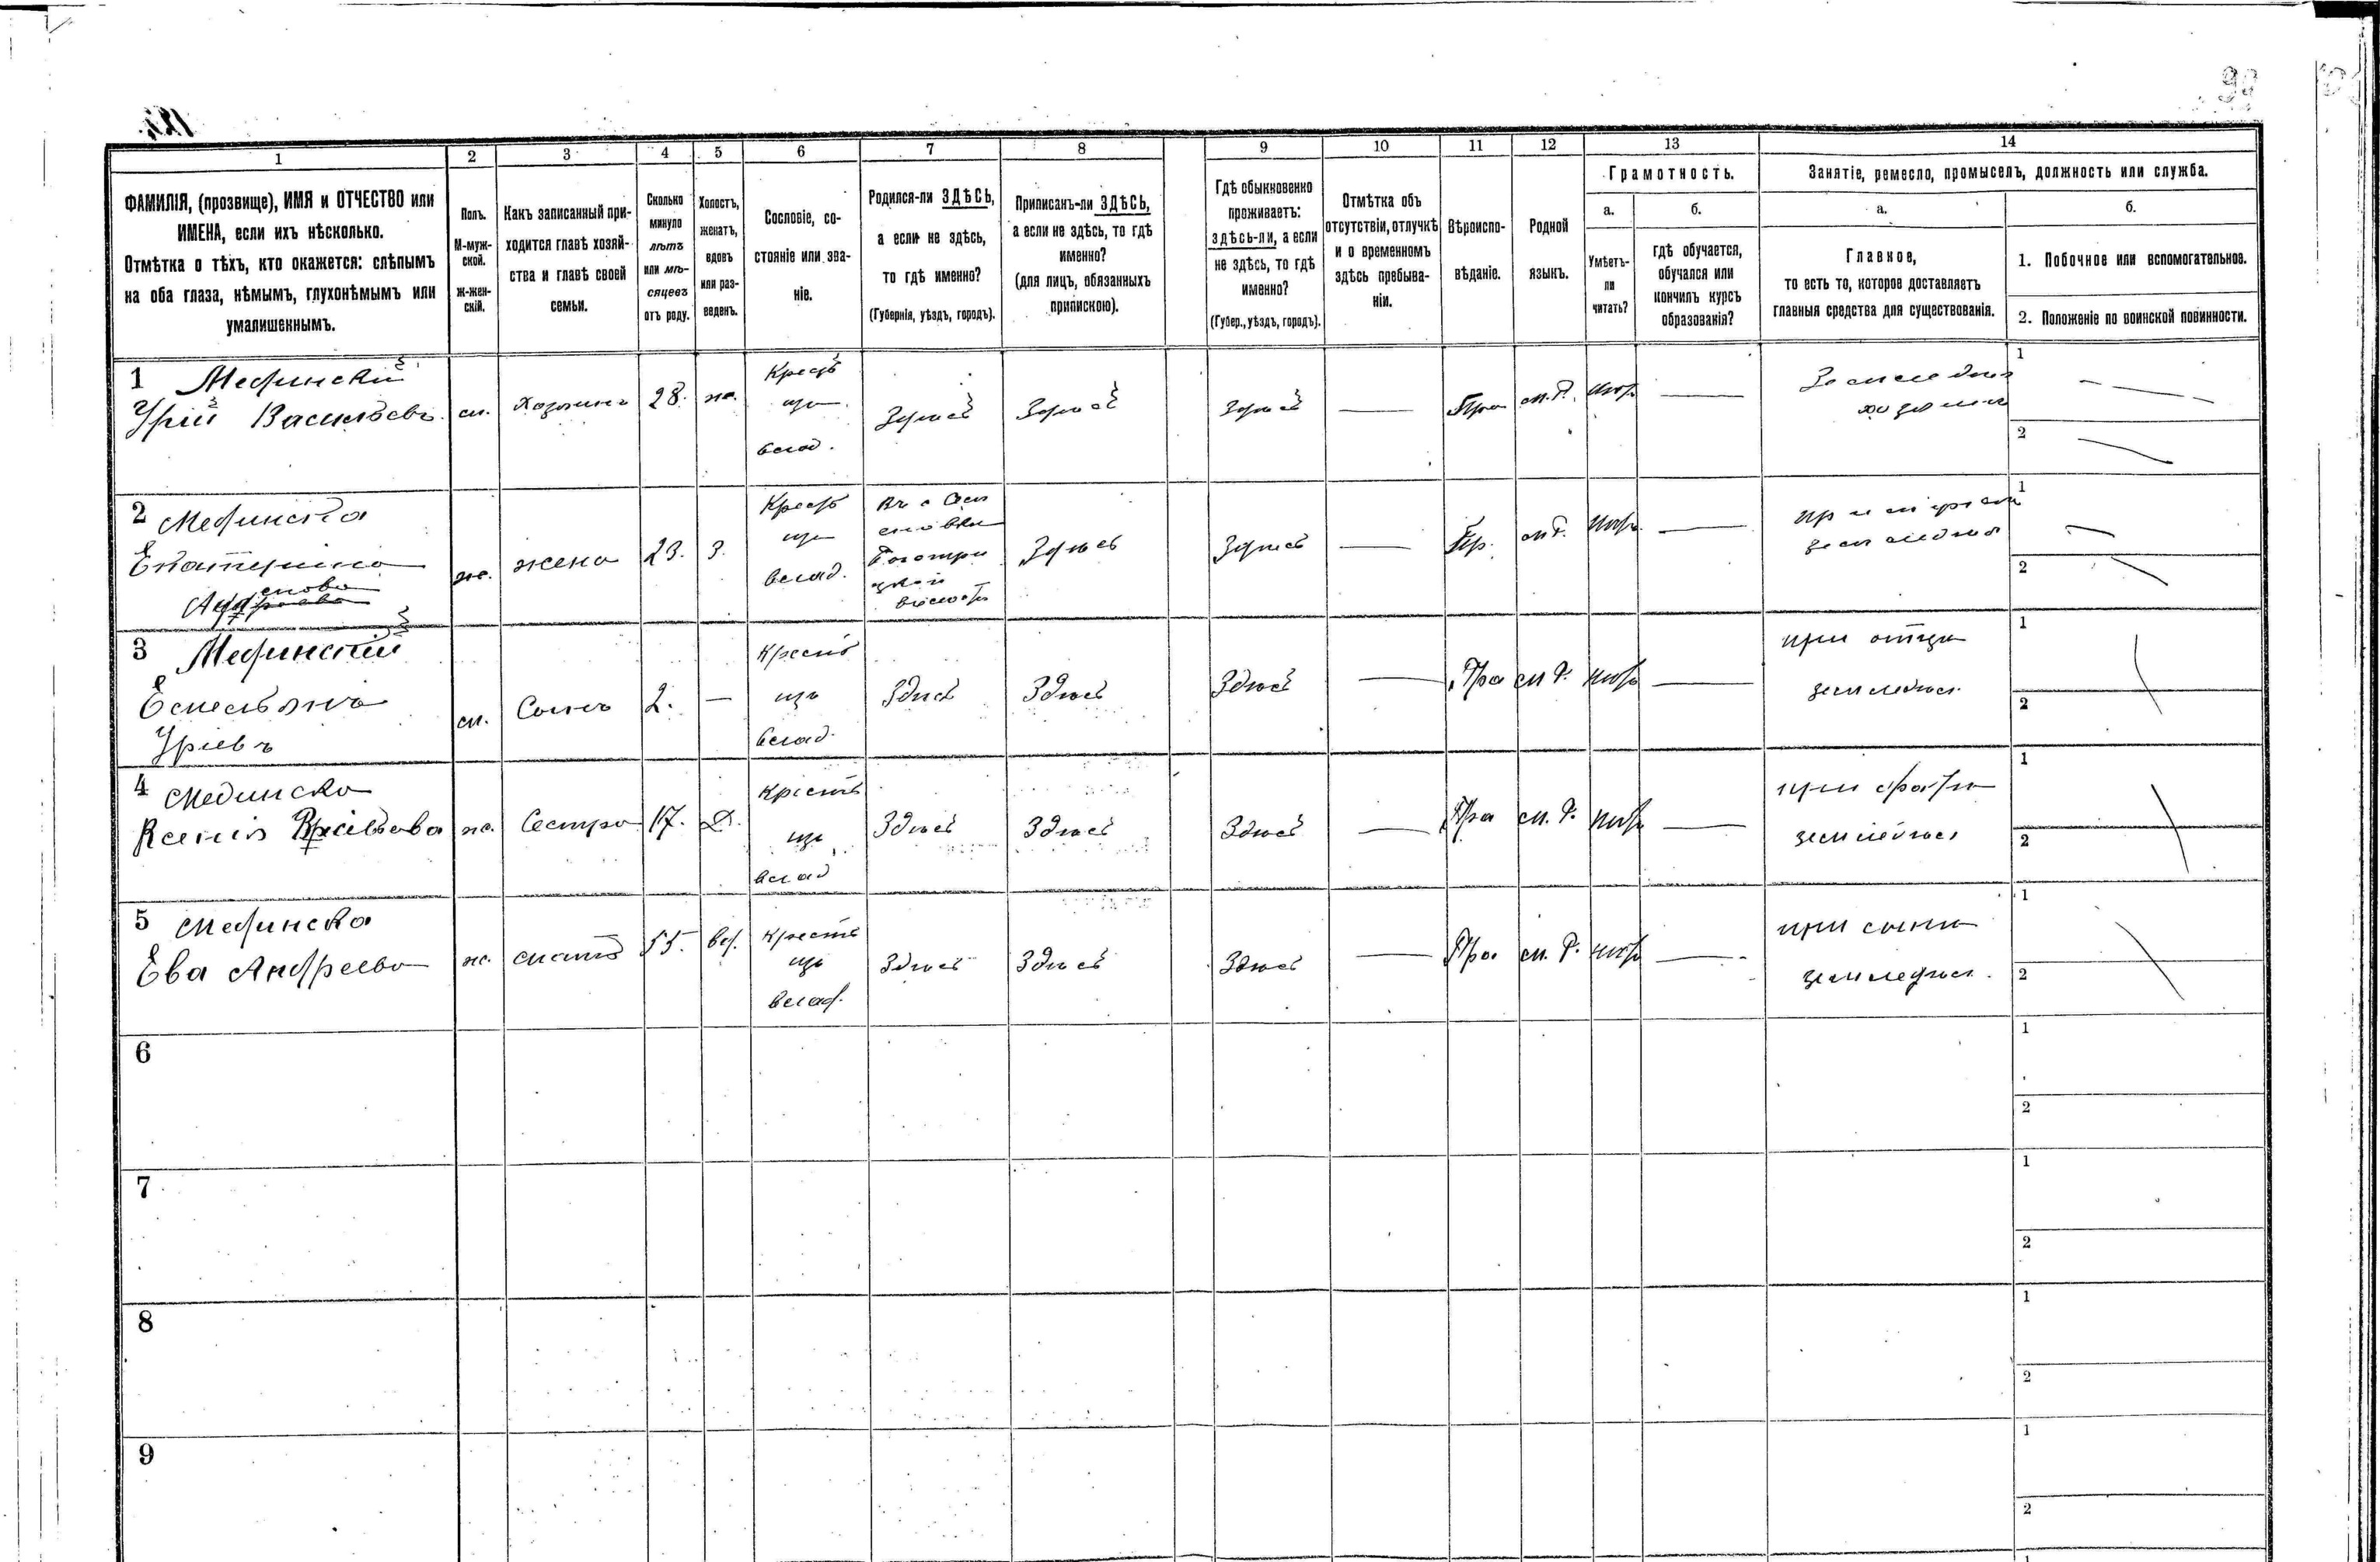 99
1 2 3 4 5 6 7 8 9 10 11 12 13 14
ФАМИЛІЯ, (прозвище), ИМЯ и ОТЧЕСТВО или
ИМЕНА, если ихъ нѣсколько.
Отмѣтка о тѣхъ, кто окажется: слѣпымъ
на оба глаза, нѣмымъ, глухонѣмымъ или
умалишеннымъ.
Полъ.
М-муж-
ской.
Ж-жен-
скій.
Какъ записанный при-
ходится главѣ хозяй-
ства и главѣ своей
семьи.
Сколько
минуло
лѣтъ
или мѣ-
сяцевъ
отъ роду.
Холостъ,
женатъ,
вдовъ
или раз-
веденъ.
Сословіе, со-
стояніе или зва-
ніе.
Родился-ли ЗДѢСЬ,
а если не здѣсь,
то гдѣ именно?
(Губернія, уѣздъ, городъ).
Приписанъ-ли ЗДѢСЬ,
а если не здѣсь, то гдѣ
именно?
(для лицъ, обязанныхъ
припискою).
Гдѣ обыкновенно
проживаетъ:
здѣсь-ли, а если
не здѣсь, то гдѣ
именно?
(Губер., уѣздъ, городъ).
Отмѣтка объ
отсутствіи, отлучкѣ
и о временномъ
здѣсь пребыва-
ніи.
Вѣроиспо-
вѣданіе.
Родной
языкъ.
Грамотность.
а.
Умѣетъ-
ли
читать?
б.
гдѣ обучается,
обучался или
кончилъ курсъ
образованія?
Занятіе, ремесло, промыселъ, должность или служба.
а.
Главное,
то есть то, которое доставляетъ
главныя средства для существованія.
б.
1. Побочное или вспомогательное.
2. Положеніе по воинской повинности.
1 Мединский
Урій Васильевъ
м.
Хозяинъ
28.
ж.
Крестъ
владъ.
Здѣсь
Здѣсь
Здѣсь
Пра
м. Р.
Земледѣл
хозяин
1
2
2 Мединска
Екатерина
ж.
жена
23.
З.
Крестъ
влад.
Здѣсь
Здѣсь
Пр.
м Р.
при муж
земледѣл
1
2
3 Мединский
Емельянъ
Уріевъ
м.
Сынъ
2.
—
Крестъ
влад.
Здѣсь
Здѣсь
Здѣсь
Пра
м Р.
при отцѣ
земледѣл.
1
2
4 Мединска
Ксенія Васильева
ж.
Сестра
17.
Д.
Крестъ
влад
Здѣсь
Здѣсь
Здѣсь
Пра
м. Р.
при братѣ
земледѣл
1
2
5 Мединска
Ева Андреева
ж.
мать
55.
вд.
Крестъ
влад.
Здѣсь
Здѣсь
Здѣсь
Пра.
м. Р.
при сынѣ
земледѣл.
1
2
6
1
2
7
1
2
8
1
2
9
1
2
1